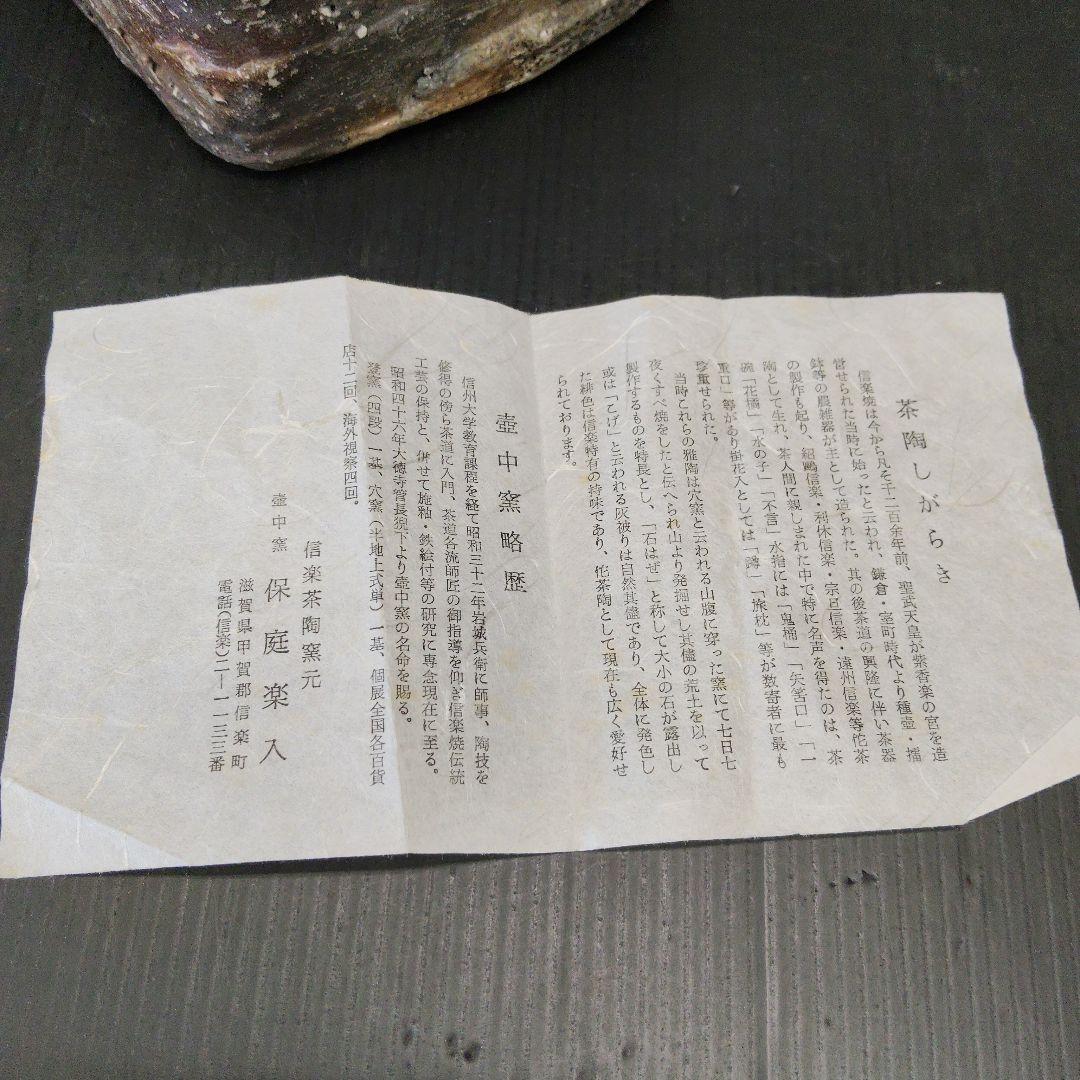 茶陶しがらき
信楽焼は今から凡そ千二百余年前、聖武天皇が紫香楽の宮を造
営せられた当時に始ったと云われ、鎌倉・室町時代より種壺・擂
鉢等の農雑器が主として造られた。其の後茶道の興隆に伴い茶器
の製作も起り、紹鴎信楽・利休信楽・宗旦信楽・遠州信楽等佗茶
陶として生れ、茶人間に親しまれた中で特に名声を得たのは、茶
碗「花橘」「水の子」「不言」水指には「鬼桶」「矢筈口」「一
重口」等があり掛花入としては「蹲」「旅枕」等が数寄者に最も
珍重せられた。
当時これらの雅陶は穴窯と云われる山腹に穿った窯にて七日七
夜くすべ焼をしたと伝へられ山より発掘せし其儘の荒土を以って
製作するものを特長とし、「石はぜ」と称して大小の石が露出し
或は「こげ」と云われる灰被りは自然其儘であり、全体に発色し
た緋色は信楽特有の持味であり、佗茶陶として現在も広く愛好せ
られております。
壺中窯略歴
信州大学教育課程を経て昭和三十二年岩城兵衛に師事、陶技を
修得の傍ら茶道に入門、茶道各流師匠の御指導を仰ぎ信楽焼伝統
工芸の保持と、併せて施釉・鉄絵付等の研究に専念現在に至る。
昭和四十六年大徳寺管長猊下より壺中窯の名命を賜る。
登窯（四段）一基、穴窯（半地上式単）一基、個展全国各百貨
店十二回、海外視察四回。
信楽茶陶窯元
壺中窯 保庭楽入
滋賀県甲賀郡信楽町
電話(信楽)二―一一三三番